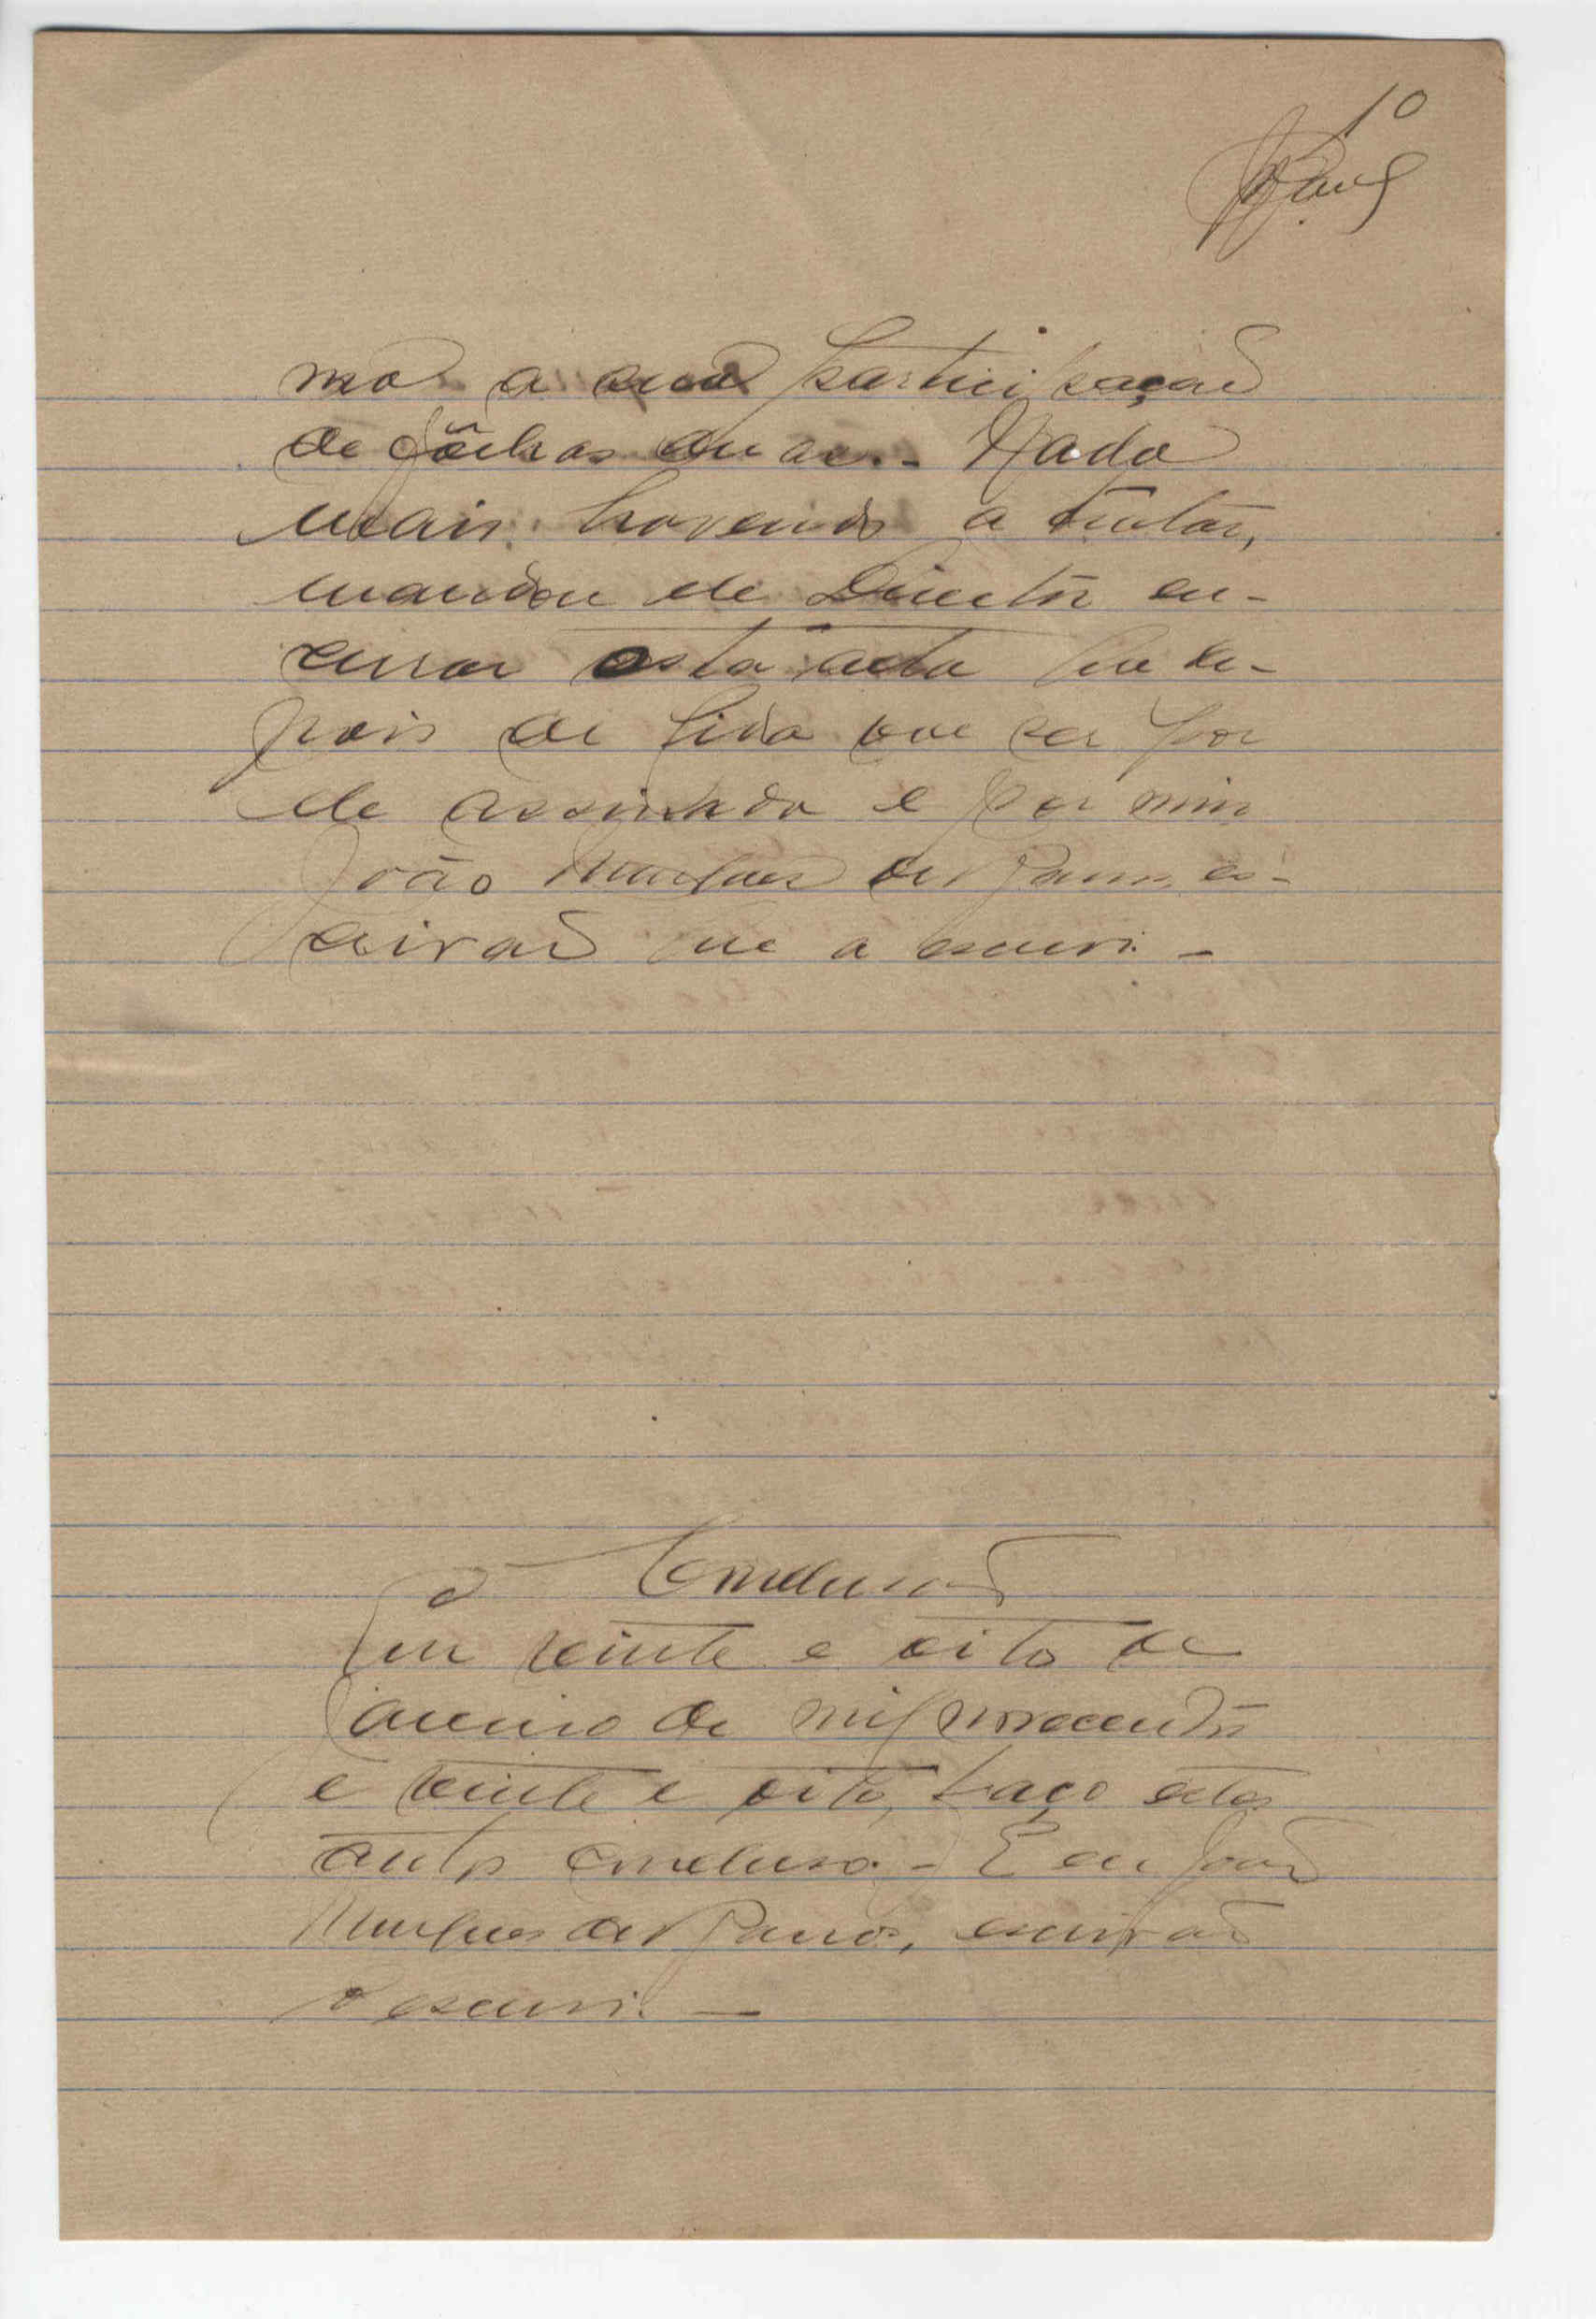 10
mo a sua participação
de folhas duas. - Nada
mais havendo a tratar,
mandou ele Director en-
cerrar esta acta que de-
pois de lida vae ser por
ele assinada e por mim
João Marques de Barros, es-
crivão que a escrevi. -
Conclusão
Em vinte e oito de
Janeiro de mil novecentos
e vinte e oito, faço estes
autos conclusos. - E eu João
Marques de Barros, escrivão
o escrevi. -